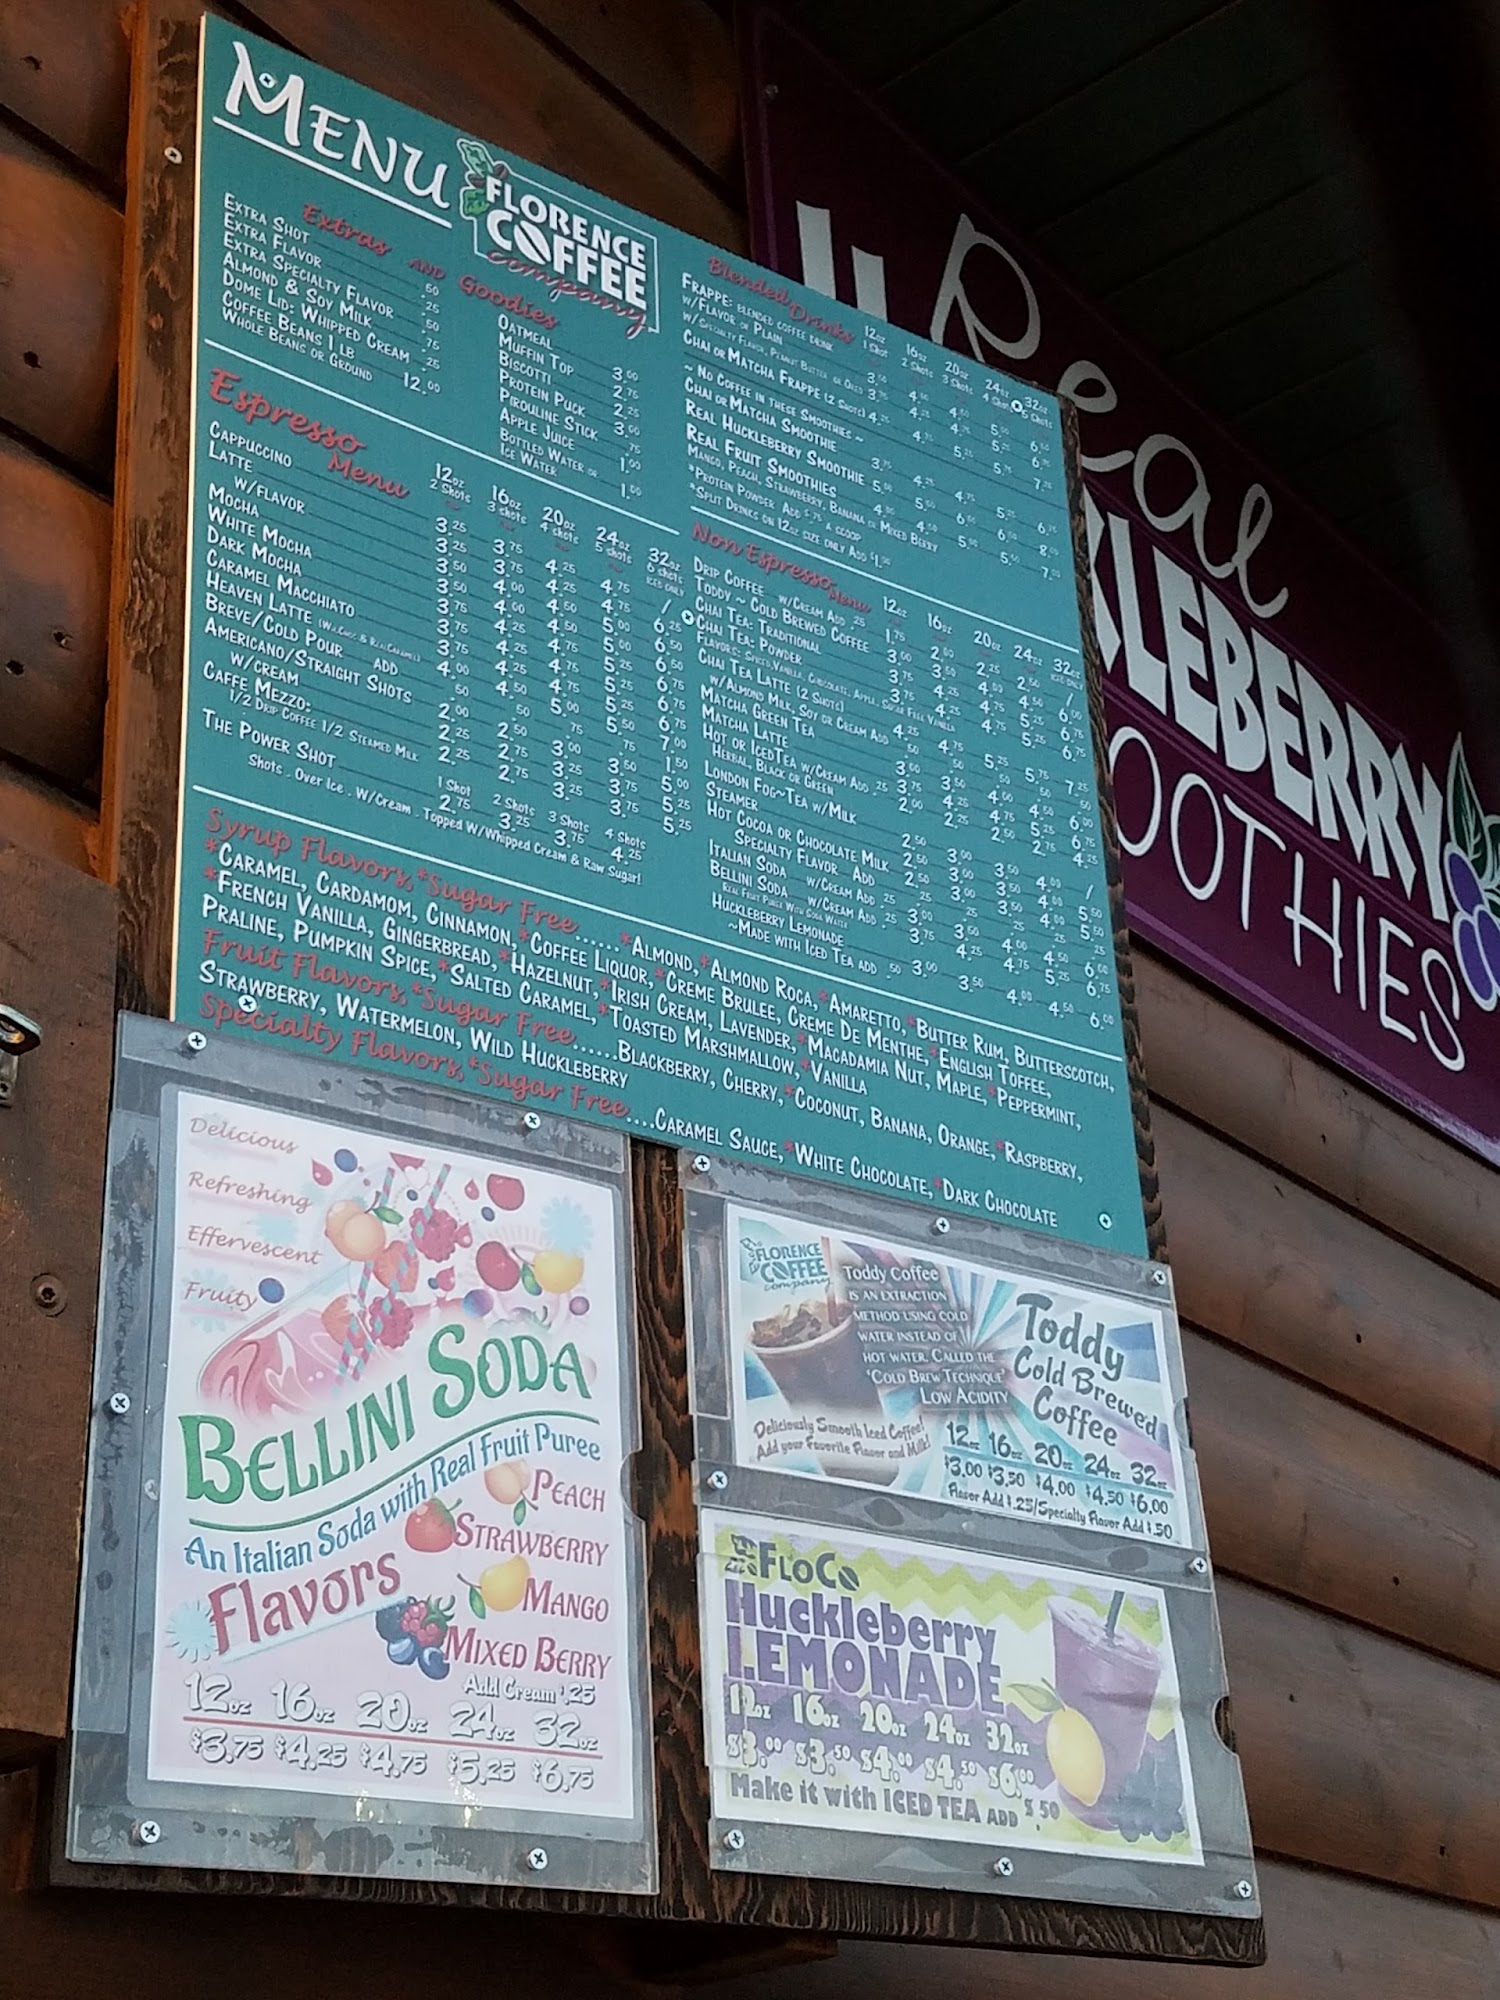 MENU
FLORENCE
COFFEE
company
Extras AND Goodies
EXTRA SHOT .50
EXTRA FLAVOR .25
EXTRA SPECIALTY FLAVOR .50
ALMOND & SOY MILK .75
DOME LID: WHIPPED CREAM .25
COFFEE BEANS 1 LB 12.00
WHOLE BEANS OR GROUND
OATMEAL 3.00
MUFFIN TOP 2.75
BISCOTTI 2.25
PROTEIN PUCK 3.00
PIROULINE STICK .75
APPLE JUICE 1.00
BOTTLED WATER OR
ICE WATER 1.00
Espresso Menu
12oz 16oz 20oz 24oz 32oz
2 Shots 3 Shots 4 Shots 5 Shots 6 Shots
ICED ONLY
CAPPUCCINO 3.25 3.75 4.25 4.75 /
LATTE 3.25 3.75 4.25 4.75 6.25
W/FLAVOR 3.50 4.00 4.50 5.00 6.50
MOCHA 3.50 4.00 4.50 5.00 6.50
WHITE MOCHA 3.75 4.25 4.75 5.25 6.75
DARK MOCHA 3.75 4.25 4.75 5.25 6.75
CARAMEL MACCHIATO 3.75 4.25 4.75 5.25 6.75
HEAVEN LATTE 4.00 4.50 5.00 5.50 7.00
BREVE/COLD POUR ADD .50 .50 .75 .75 1.50
AMERICANO/STRAIGHT SHOTS 2.00 2.50 3.00 3.50 5.00
W/CREAM 2.25 2.75 3.25 3.75 5.25
CAFFE MEZZO: 2.25 2.75 3.25 3.75 5.25
1/2 DRIP COFFEE 1/2 STEAMED MILK
1 Shot 2 Shots 3 Shots 4 Shots
THE POWER SHOT 2.75 3.25 3.75 4.25
Shots . Over Ice . W/Cream . Topped W/Whipped Cream & Raw Sugar!
Blended Drinks
12oz 16oz 20oz 24oz 32oz
1 Shot 2 Shots 3 Shots 4 Shots 5 Shots
FRAPPE: BLENDED COFFEE DRINK
W/FLAVOR OR PLAIN
W/SPECIALTY FLAVOR, PEANUT BUTTER OR OREO
CHAI OR MATCHA FRAPPE (2 SHOTS)
~ NO COFFEE IN THESE SMOOTHIES ~
CHAI OR MATCHA SMOOTHIE
REAL HUCKLEBERRY SMOOTHIE
REAL FRUIT SMOOTHIES
MANGO, PEACH, STRAWBERRY, BANANA OR MIXED BERRY
*PROTEIN POWDER ADD $.75 A SCOOP
*SPLIT DRINKS ON 12oz SIZE ONLY ADD $1.00
Non Espresso Menu
12oz 16oz 20oz 24oz 32oz
ICED ONLY
DRIP COFFEE W/CREAM ADD .25 1.75 2.00 2.25 2.50 /
TODDY ~ COLD BREWED COFFEE 3.00 3.50 4.00 4.50 6.00
CHAI TEA: TRADITIONAL 3.75 4.25 4.75 5.25 6.75
CHAI TEA: POWDER 3.75 4.25 4.75 5.25 6.75
FLAVORS: SPICED, VANILLA, CHOCOLATE, APPLE, SUGAR FREE VANILLA
CHAI TEA LATTE (2 SHOTS) 4.25 4.75 5.25 5.75 7.25
W/ALMOND MILK, SOY OR CREAM ADD
MATCHA GREEN TEA
MATCHA LATTE
HOT OR ICED TEA W/CREAM ADD .25
HERBAL, BLACK OR GREEN
LONDON FOG~TEA W/MILK
STEAMER
HOT COCOA OR CHOCOLATE MILK
SPECIALTY FLAVOR ADD
ITALIAN SODA W/CREAM ADD .25
BELLINI SODA W/CREAM ADD .25
REAL FRUIT PUREE WITH SODA WATER
HUCKLEBERRY LEMONADE 3.00 3.50 4.00 4.50 6.00
~MADE WITH ICED TEA ADD .50
Syrup Flavors, *Sugar Free......*ALMOND, *ALMOND ROCA, *AMARETTO, *BUTTER RUM, BUTTERSCOTCH,
*CARAMEL, CARDAMOM, CINNAMON, *COFFEE LIQUOR, *CREME BRULEE, CREME DE MENTHE, *ENGLISH TOFFEE,
*FRENCH VANILLA, GINGERBREAD, *HAZELNUT, *IRISH CREAM, LAVENDER, *MACADAMIA NUT, MAPLE, *PEPPERMINT,
PRALINE, PUMPKIN SPICE, *SALTED CARAMEL, *TOASTED MARSHMALLOW, *VANILLA
Fruit Flavors, *Sugar Free......BLACKBERRY, CHERRY, *COCONUT, BANANA, ORANGE, *RASPBERRY,
STRAWBERRY, WATERMELON, WILD HUCKLEBERRY
Specialty Flavors, *Sugar Free....CARAMEL SAUCE, *WHITE CHOCOLATE, *DARK CHOCOLATE
Real
HUCKLEBERRY
SMOOTHIES
Delicious
Refreshing
Effervescent
Fruity
BELLINI SODA
An Italian Soda with Real Fruit Puree
Flavors
PEACH
STRAWBERRY
MANGO
MIXED BERRY
Add Cream $.25
12oz 16oz 20oz 24oz 32oz
$3.75 $4.25 $4.75 $5.25 $6.75
FLORENCE
COFFEE
company
Toddy Coffee
IS AN EXTRACTION
METHOD USING COLD
WATER INSTEAD OF
HOT WATER. CALLED THE
'COLD BREW TECHNIQUE'
LOW ACIDITY
Deliciously Smooth Iced Coffee!
Add your Favorite Flavor and Milk!
Toddy
Cold Brewed
Coffee
12oz 16oz 20oz 24oz 32oz
$3.00 $3.50 $4.00 $4.50 $6.00
Flavor Add $.25/Specialty Flavor Add $.50
FLOCO
Huckleberry
LEMONADE
12oz 16oz 20oz 24oz 32oz
$3.00 $3.50 $4.00 $4.50 $6.00
Make it with ICED TEA ADD $.50